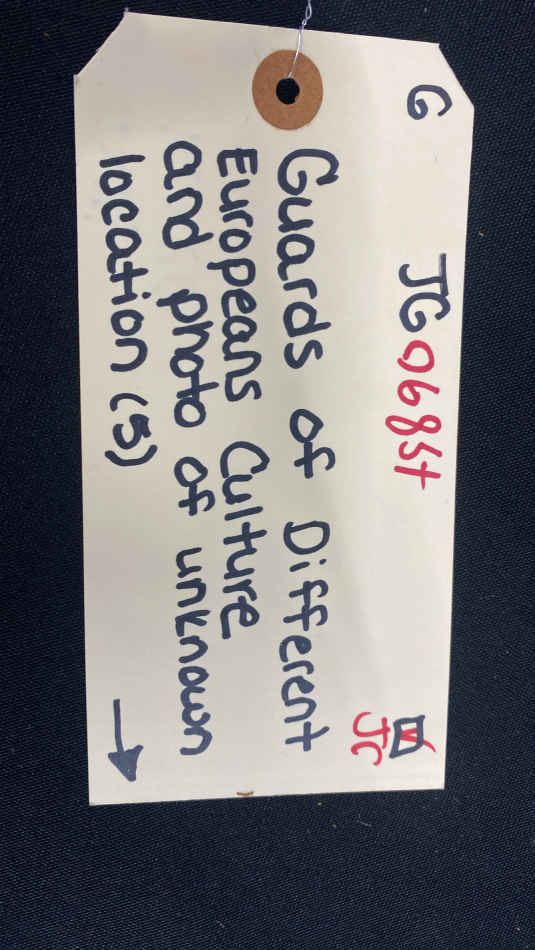 G JG068st
JC
Guards of Different
Europeans Culture
and photo of unknown
location (5)